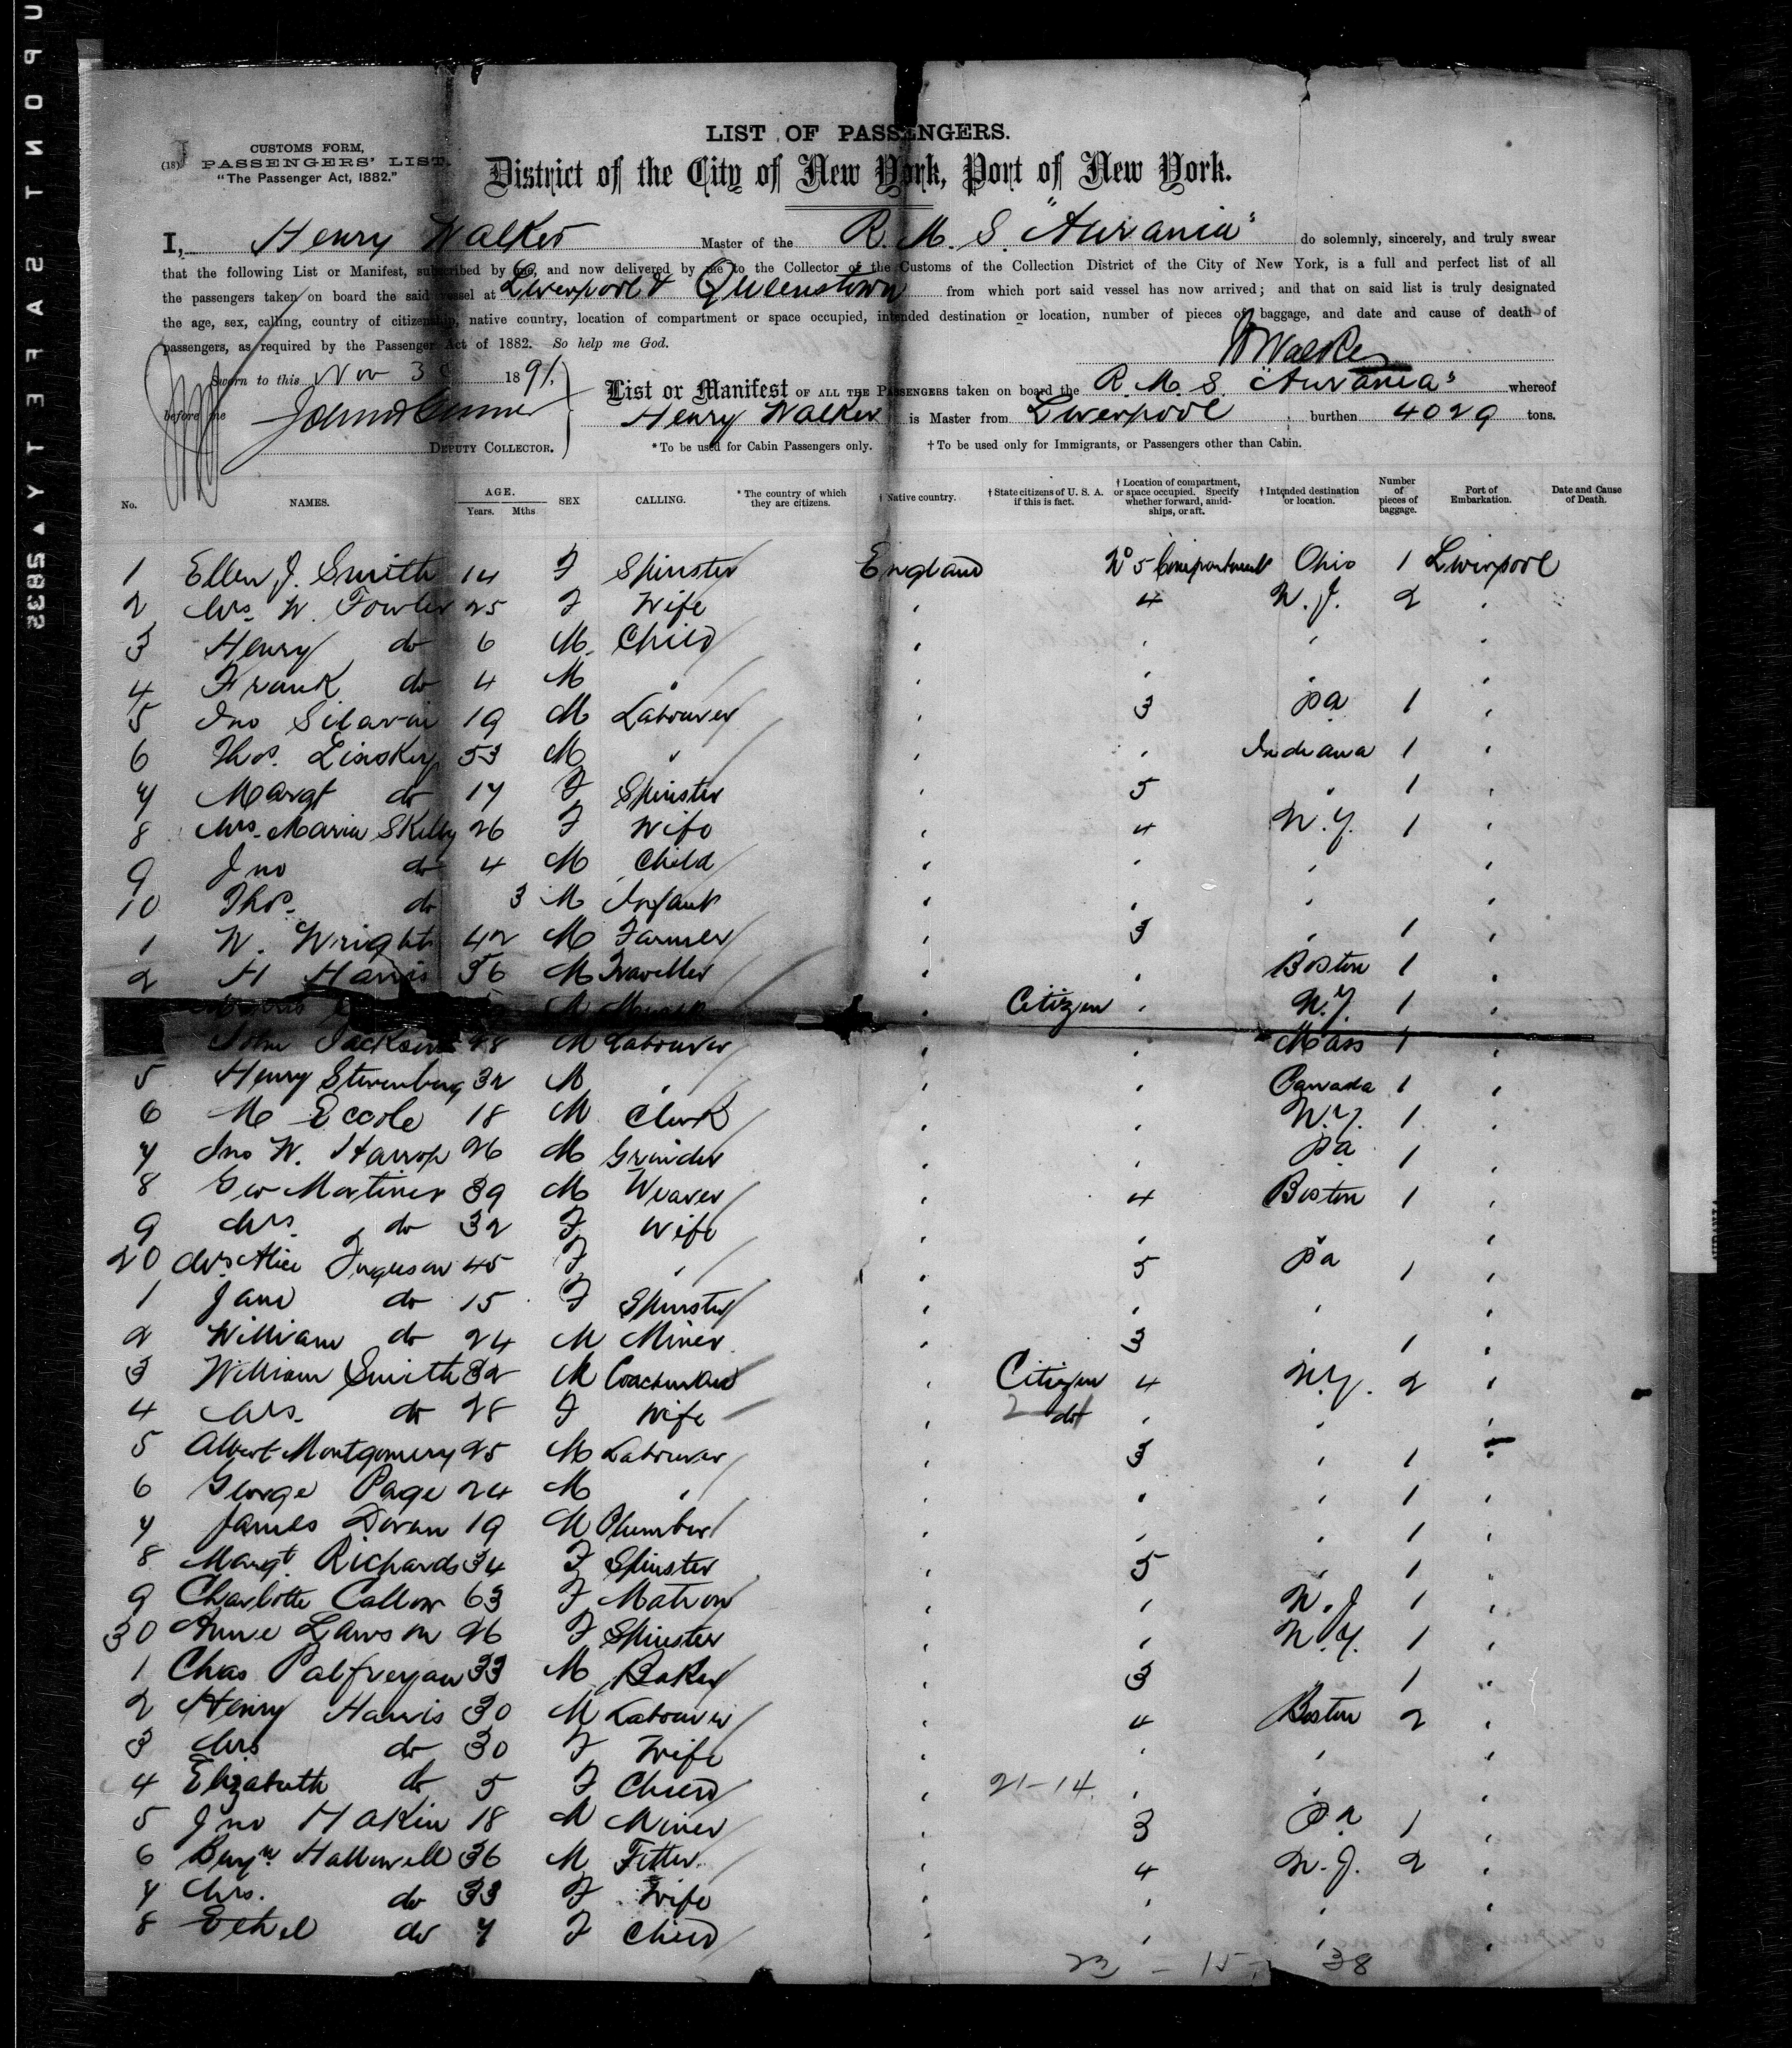 UPONT SAFETY ▲ 5833
LIST OF PASSENGERS.
CUSTOMS FORM,
(18) PASSENGERS' LIST.
"The Passenger Act, 1882."
District of the City of New York, Port of New York.
I, Henry Walker Master of the R. M. S. "Aurania" do solemnly, sincerely, and truly swear
that the following List or Manifest, subscribed by me, and now delivered by me to the Collector of the Customs of the Collection District of the City of New York, is a full and perfect list of all
the passengers taken on board the said vessel at Liverpool & Queenstown from which port said vessel has now arrived; and that on said list is truly designated
the age, sex, calling, country of citizenship, native country, location of compartment or space occupied, intended destination or location, number of pieces of baggage, and date and cause of death of
passengers, as required by the Passenger Act of 1882. So help me God.
HWalker
Sworn to this Nov 30 1891,
before me
DEPUTY COLLECTOR.
List or Manifest OF ALL THE PASSENGERS taken on board the R. M. S. "Aurania" whereof
Henry Walker is Master from Liverpool , burthen 4029 tons.
*To be used for Cabin Passengers only. †To be used only for Immigrants, or Passengers other than Cabin.
No. NAMES. AGE. Years. Mths SEX CALLING. * The country of which they are citizens. † Native country. † State citizens of U. S. A. if this is fact. † Location of compartment, or space occupied. Specify whether forward, amidships, or aft. † Intended destination or location. Number of pieces of baggage. Port of Embarkation. Date and Cause of Death.
1 Ellen J. Smith 14 F Spinster England No 5 Compartment Ohio 1 Liverpool
2 Mrs. W. Fowler 25 F Wife " 4 N. J. 2 "
3 Henry do 6 M. Child " " " "
4 Frank do 4 M " " " " "
5 Jno 19 M Labourer " 3 Pa 1 "
6 Thos. Linskey 53 M " " " Indiana 1 "
7 Margt do 17 F Spinster " 5 " 1 "
8 Mrs. Maria Skelly 26 F Wife " 4 N. Y. 1 "
9 Jno do 4 M Child " " " "
10 Thos. do 3 M Infant " " " "
1 W. Wright 42 M Farmer " 3 " 1 "
2 H Harris 36 M Traveller " " Boston 1 "
M " Citizen " N.Y. 1 "
John Jackson 28 M Labourer " " Mass 1 "
5 Henry Sternberg 32 M " " " Canada 1 "
6 M Eccole 18 M Clerk " " N.Y. 1 "
7 Jno W. Harrop 26 M Grinder " " Pa 1 "
8 Geo Mortimer 39 M Weaver " 4 Boston 1 "
9 Mrs. do 32 F Wife " " " "
20 Mrs Alice Ferguson 45 F " " 5 Pa 1 "
1 Jane do 15 F Spinster " " " "
2 William do 24 M Miner " 3 1 "
3 William Smith 32 M Coachman " Citizen 4 N.Y. 2 "
4 Mrs. do 28 F Wife " 2 do " " "
5 Albert Montgomery 25 M Labourer " 3 " 1 "
6 George Page 24 M " " " " 1 "
7 James Doran 19 M Plumber " " " 1 "
8 Margt. Richards 34 F Spinster " 5 " 1 "
9 Charlotte Callow 63 F Matron " " N. J 1 "
30 Anne Lawson 26 F Spinster " " N.Y. 1 "
1 Chas Palfreyman 33 M Baker " 3 1 "
2 Henry Harris 30 M Labourer " 4 Boston 2 "
3 Mrs do 30 F Wife " " " "
4 Elizabeth do 5 F Child " 21-14. " " "
5 Jno Makin 18 M Miner " 3 Pa 1 "
6 Benjn. Hallowell 36 M Fitter " 4 N. J. 2 "
7 Mrs. do 33 F Wife " " " "
8 Ethel do 7 F Child " " " "
23 - 15 - 38